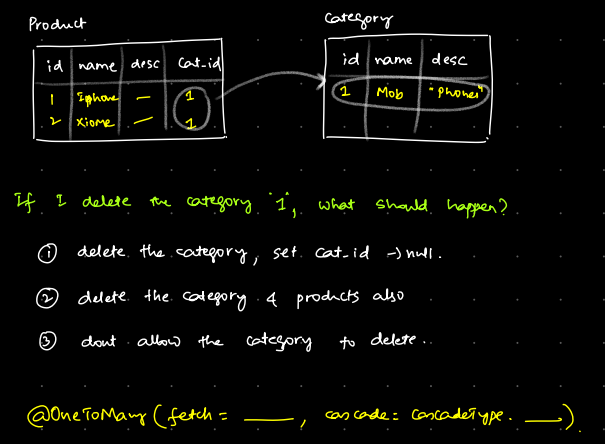 Product
id name desc Cat_id
1 Iphone — 1
2 Xiome — 1
Category
id name desc
1 Mob "Phones"
If I delete the category "1", what should happen?
① delete the category, set cat_id → null.
② delete the category & products also
③ dont allow the category to delete..
@OneToMany (fetch = ____, cascade = cascadeType. ____).